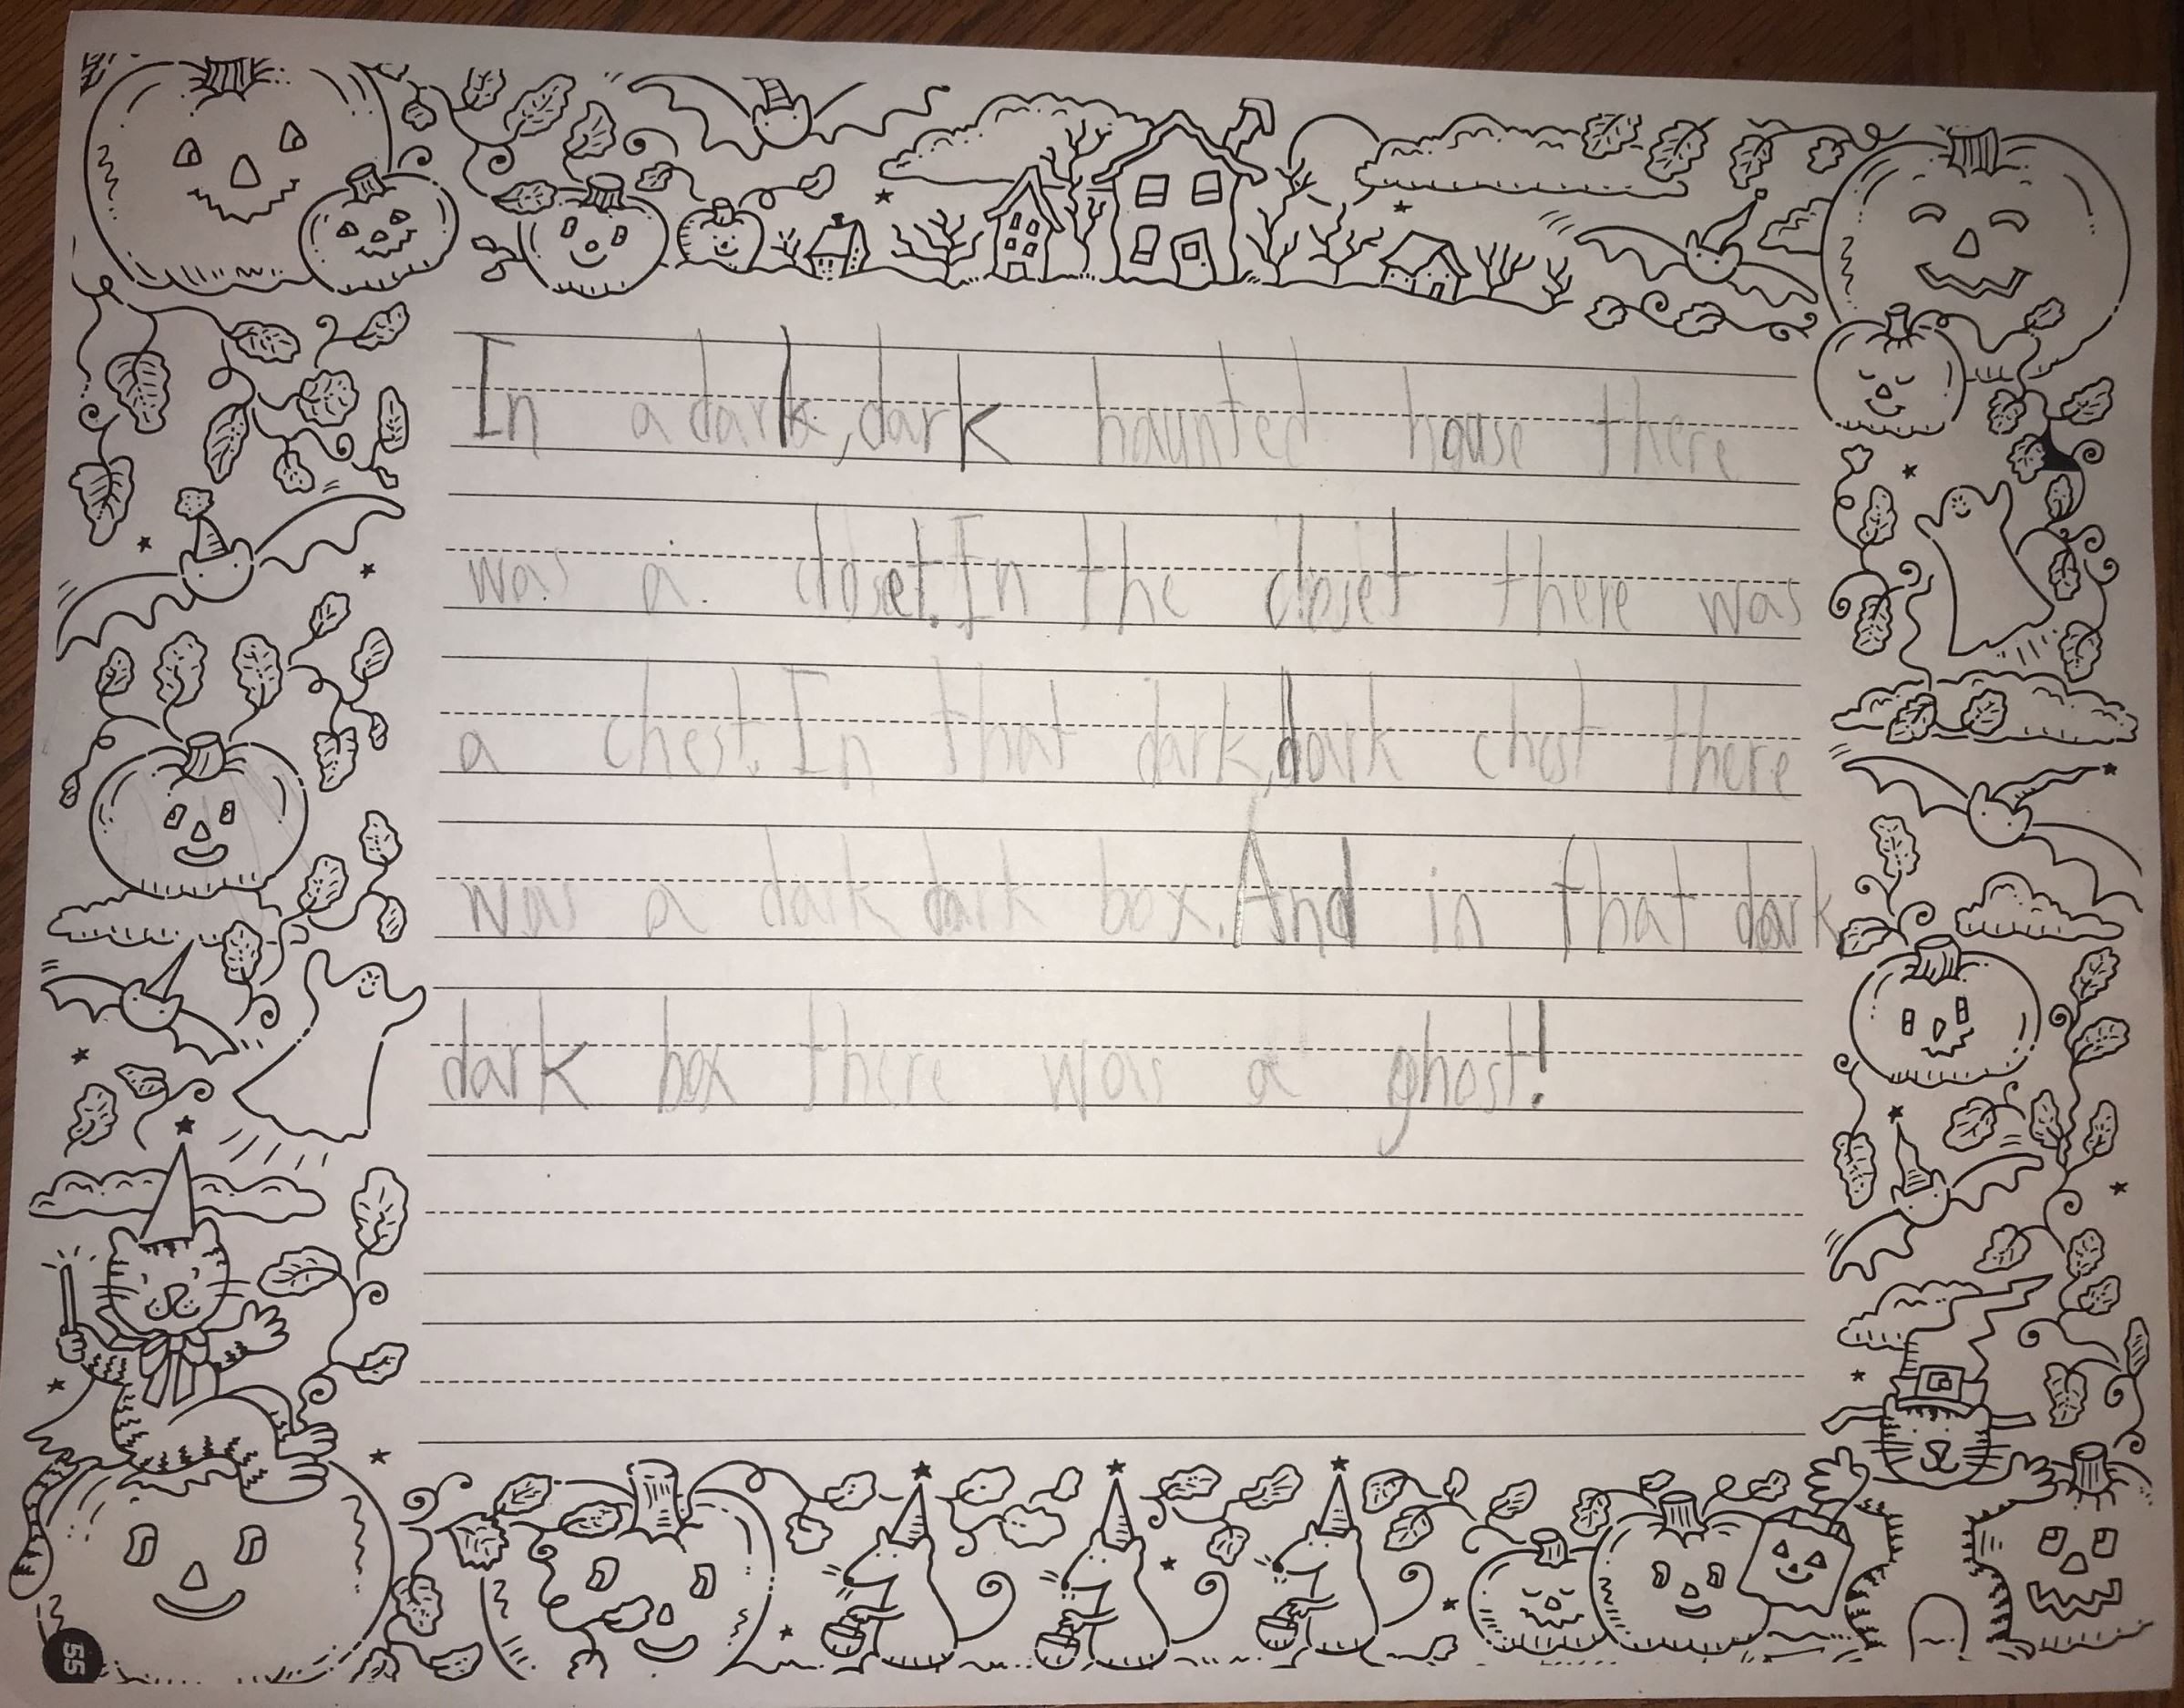 In a dark, dark haunted house there
was a closet. In the closet there was
a chest. In that dark, dark chest there
was a dark dark box. And in that dark
dark box there was a ghost!
55